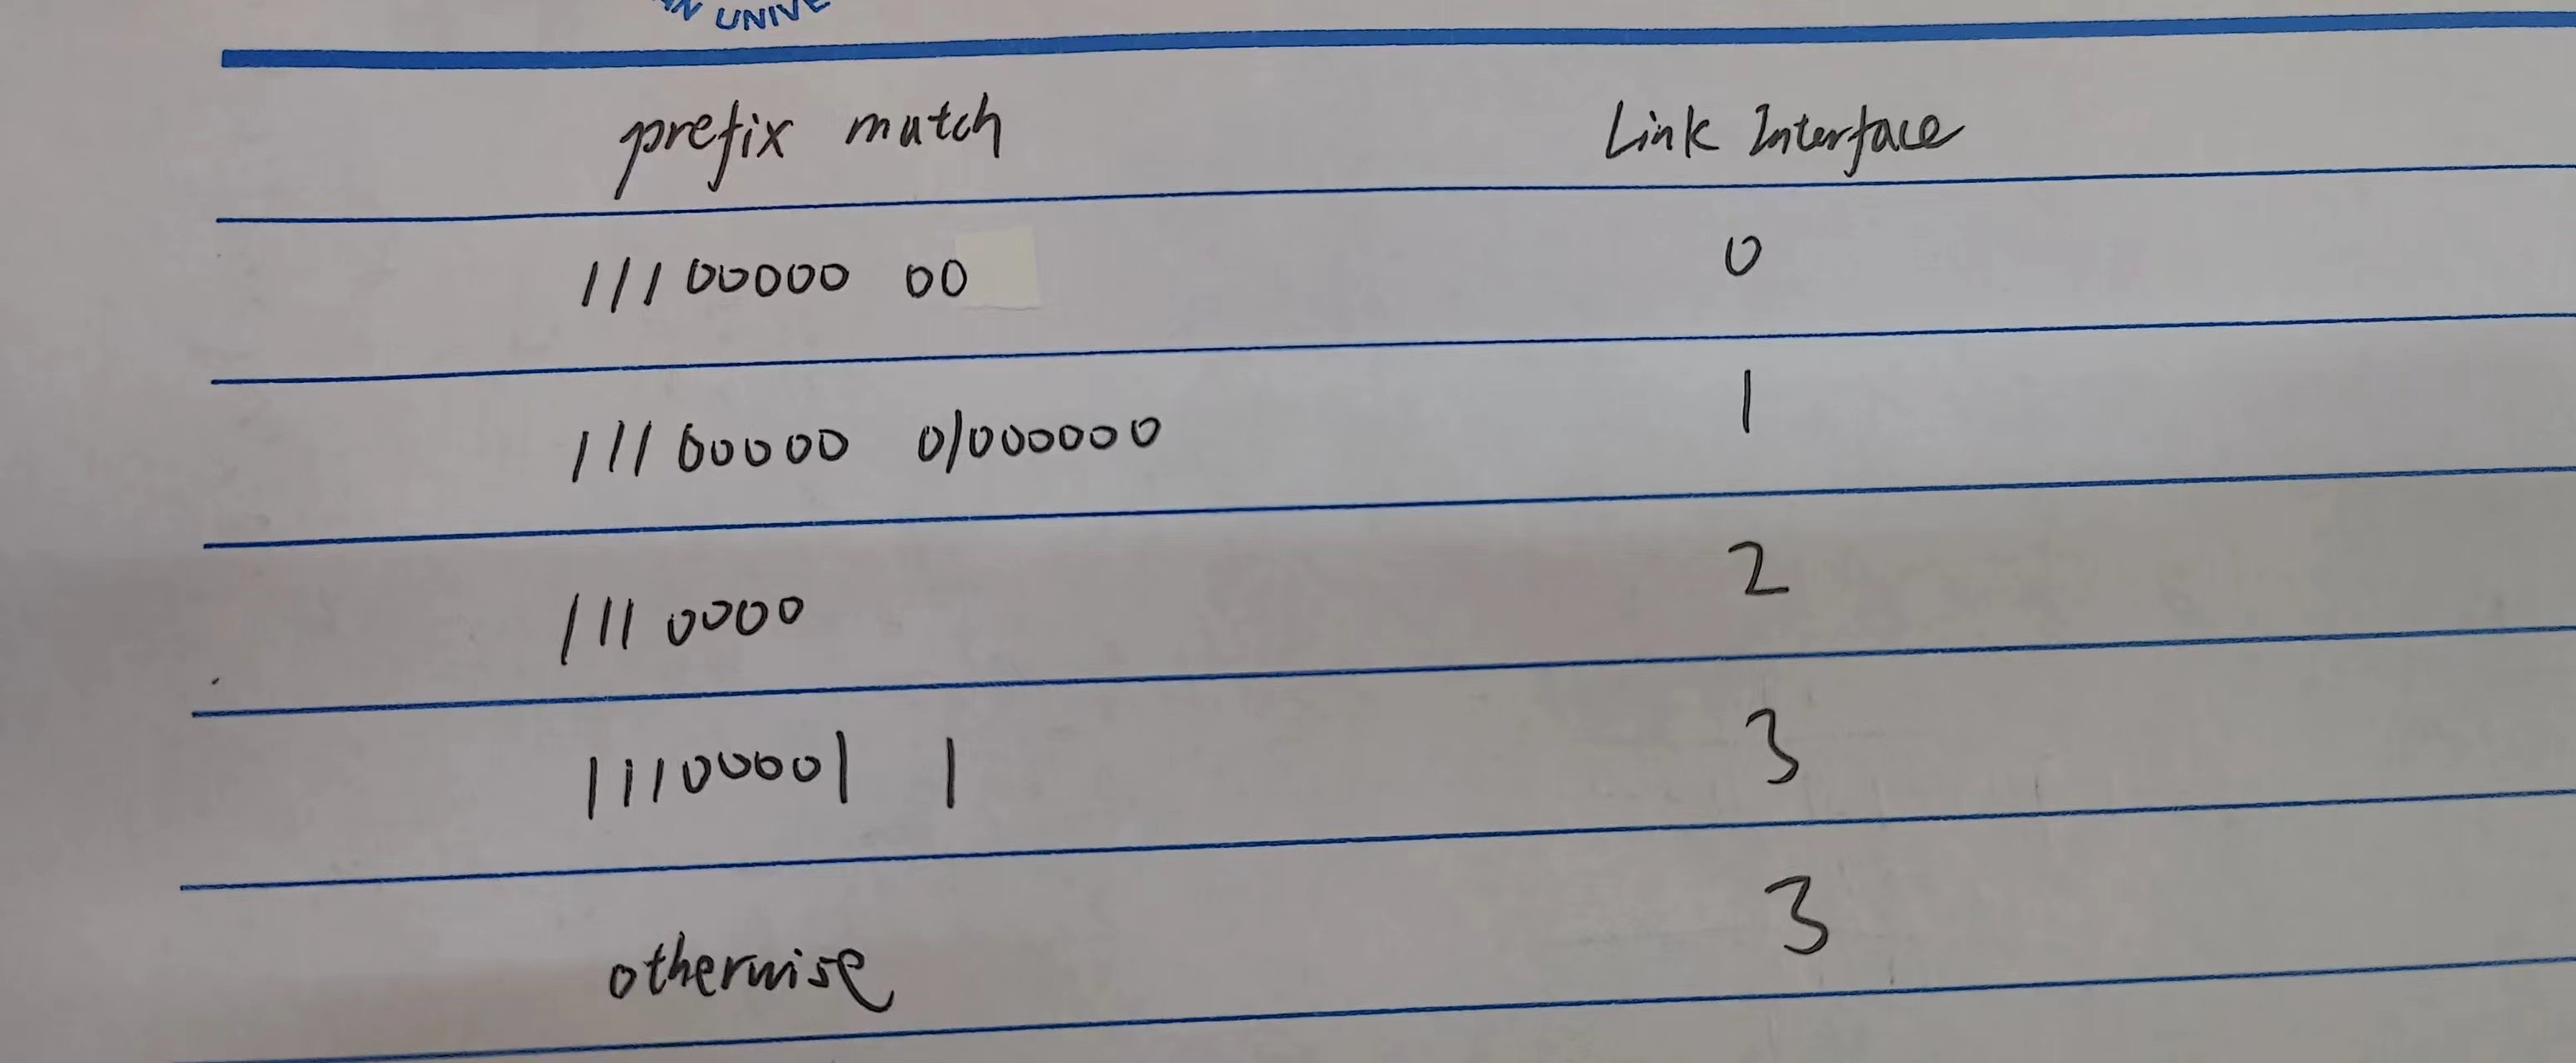 UNIVE
prefix match Link Interface
11100000 00 0
11100000 01000000 1
1110000 2
11100001 1 3
otherwise 3